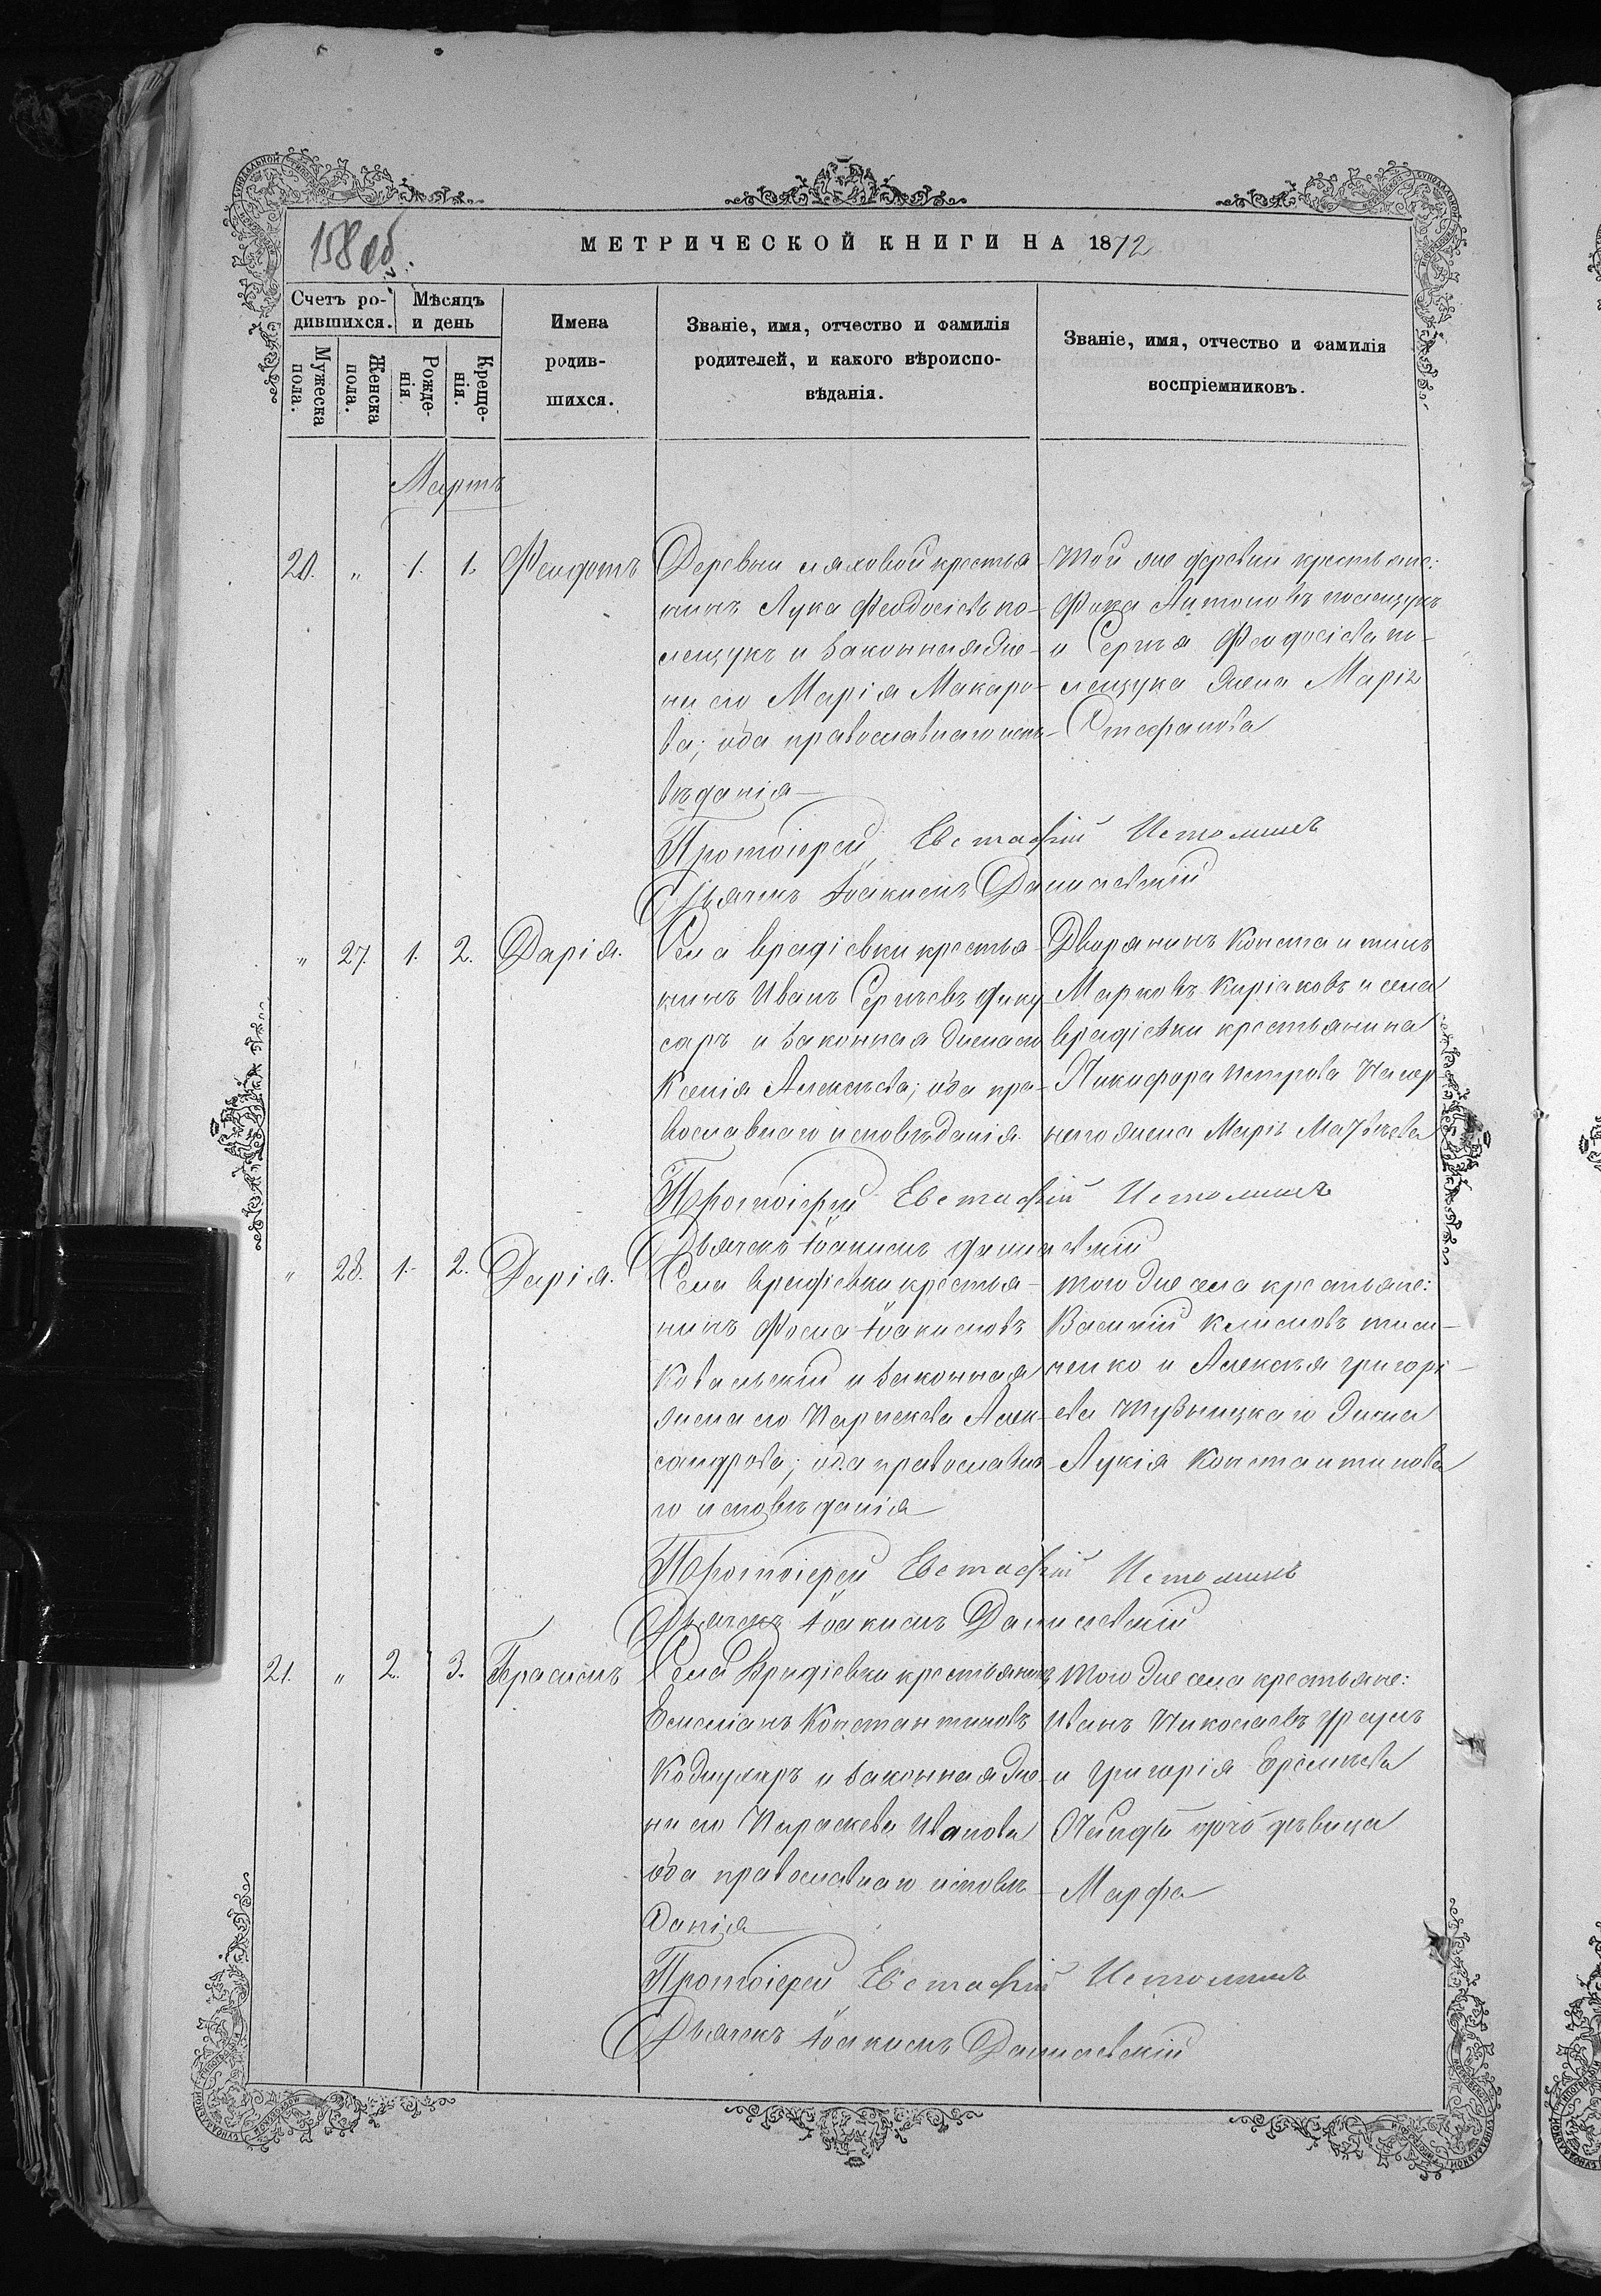 158 об.
МЕТРИЧЕСКОЙ КНИГИ НА 1872
Счетъ ро-
дившихся.
Мѣсяцъ
и день
Мужеска
пола.
Женска
пола.
Рожде-
нія
Креще-
нія.
Имена
родив-
шихся.
Званіе, имя, отчество и фамилія
родителей, и какого вѣроиспо-
вѣданія.
Званіе, имя, отчество и фамилія
воспріемниковъ.
Мартъ
20. " 1. 1. Феодотъ
Деревни Ляховой крестья-
нинъ Лука Феодосіевъ по-
лещукъ и законная же-
на его Марія Макаро-
ва; оба православнаго испо-
вѣданія
Той же деревни крестьяне:
Фока Антоновъ полещукъ
и Сергѣя Феодосіева по-
лещука жена Марія
Стефанова
Протоіерей Евстафій Истоминъ
Дьячекъ Іоакимъ Данилевскій
" 27. 1. 2. Дарія.
Села врадіевки крестья-
нинъ Иванъ Сергѣевъ
и законная жена его
Ксенія Алексѣева; оба пра-
вославнаго исповѣданія.
Дворянинъ Константинъ
Марковъ Киріаковъ и села
врадіевки крестьянина
Никифора петрова
жена Марія
Протоіерей Евстафій Истоминъ
Дьячекъ Іоакимъ Данилевскій
" 28. 1. 2. Дарія.
Села врадіевки крестья-
нинъ Фома Іоакимовъ
Ковальскій и законная
жена его Параскева Алек-
сандрова; оба православна-
го исповѣданія
Того же села крестьяне:
Василій Климовъ тим-
ченко и Алексѣя григорі-
ева жена
Лукія Константинова
Протоіерей Евстафій Истоминъ
Дьячекъ Іоакимъ Данилевскій
21. " 2. 3. Герасимъ
Села Врадіевки крестьянинъ
Емеліанъ Константиновъ
Кодимяръ и законная же-
на его Параскева Иванова
оба православнаго исповѣ-
данія
Того же села крестьяне:
Иванъ Николаевъ
и григорія
дочь дѣвица
Марфа
Протоіерей Евстафій Истоминъ
Дьячекъ Іоакимъ Данилевскій